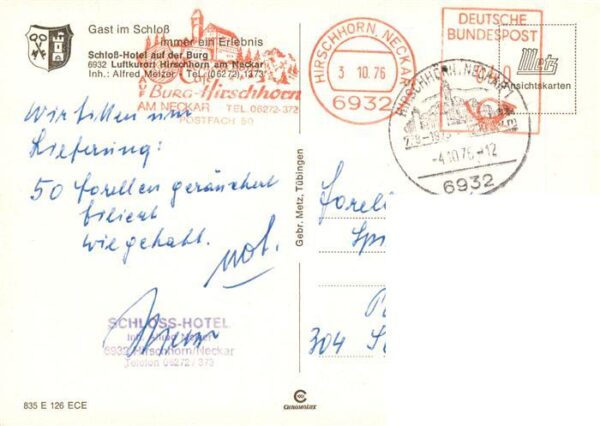 Gast im Schloß
immer ein Erlebnis
Schloß-Hotel auf der Burg
6932 Luftkurort Hirschhorn am Neckar
Inh.: Alfred Meizer Tel. (06272) 1373
Burg-Hirschhorn
AM NECKAR TEL. 06272-372
POSTFACH 50
HIRSCHHORN NECKAR
3 10.76
6932
DEUTSCHE
BUNDESPOST
Metz
Ansichtskarten
HIRSCHHORN, NECKAR
-4.10.76-12
6932
Wir bitten um
Lieferung:
50 Forellen geräuchert
filiert
wie gehabt.
Gebr. Metz, Tübingen
SCHLOSS-HOTEL
6932 Hirschhorn/Neckar
Telefon 06272 / 373
Forel
304 S
835 E 126 ECE